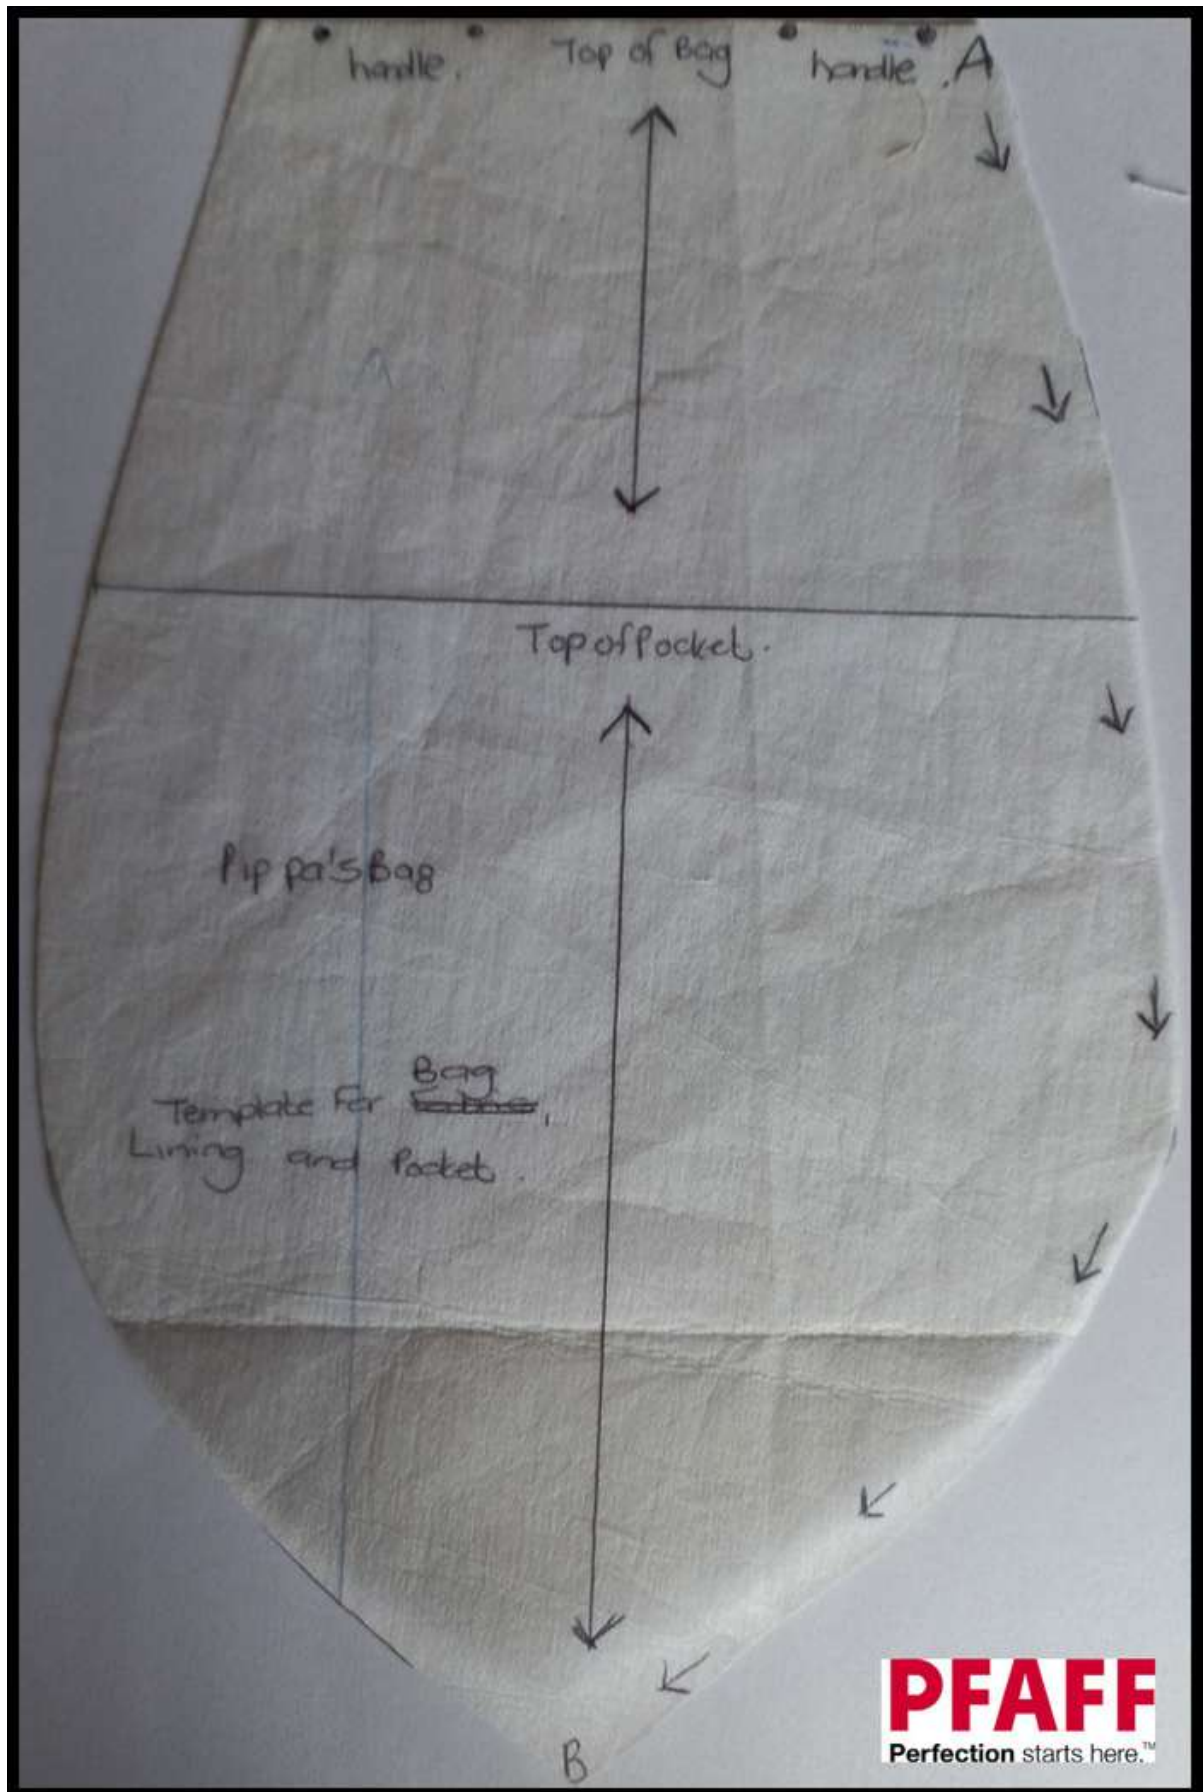 handle. Top of Bag handle . A
Top of Pocket.
Pippa's Bag
Bag
Template For
Lining and Pocket.
B
PFAFF
Perfection starts here.™